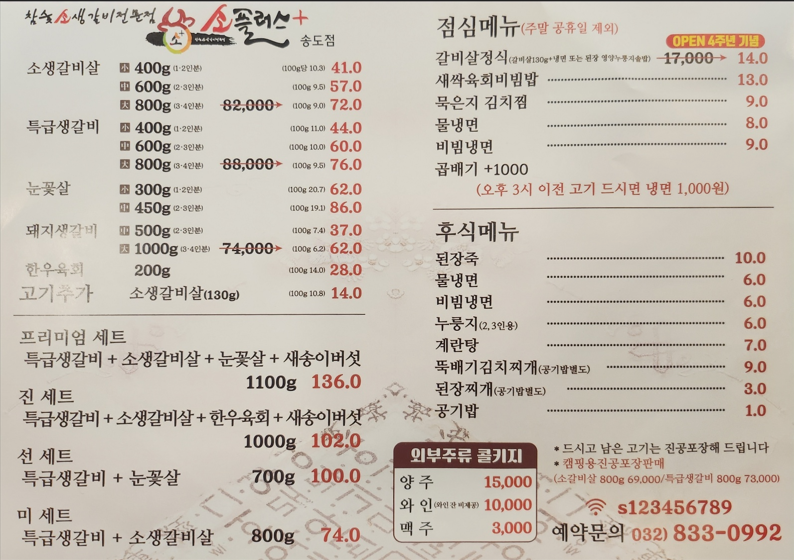 참숯 소생갈비전문점 소플러스+ 송도점
소생갈비살 小 400g (1·2인분) (100g당 10.3) 41.0
中 600g (2·3인분) (100g 9.5) 57.0
大 800g (3·4인분) 82,000 (100g 9.0) 72.0
특급생갈비 小 400g (1·2인분) (100g 11.0) 44.0
中 600g (2·3인분) (100g 10.0) 60.0
大 800g (3·4인분) 88,000 (100g 9.5) 76.0
눈꽃살 小 300g (1·2인분) (100g 20.7) 62.0
中 450g (2·3인분) (100g 19.1) 86.0
돼지생갈비 中 500g (2·3인분) (100g 7.4) 37.0
大 1000g (3·4인분) 74,000 (100g 6.2) 62.0
한우육회 200g (100g 14.0) 28.0
고기추가 소생갈비살(130g) (100g 10.8) 14.0
프리미엄 세트
특급생갈비 + 소생갈비살 + 눈꽃살 + 새송이버섯
1100g 136.0
진 세트
특급생갈비 + 소생갈비살 + 한우육회 + 새송이버섯
1000g 102.0
선 세트
특급생갈비 + 눈꽃살 700g 100.0
미 세트
특급생갈비 + 소생갈비살 800g 74.0
점심메뉴(주말 공휴일 제외)
OPEN 4주년 기념
갈비살정식(갈비살130g+냉면 또는 된장 영양누룽지솥밥) 17,000 14.0
새싹육회비빔밥 13.0
묵은지 김치찜 9.0
물냉면 8.0
비빔냉면 9.0
곱배기 +1000
(오후 3시 이전 고기 드시면 냉면 1,000원)
후식메뉴
된장죽 10.0
물냉면 6.0
비빔냉면 6.0
누룽지(2, 3인용) 6.0
계란탕 7.0
뚝배기김치찌개(공기밥별도) 9.0
된장찌개(공기밥별도) 3.0
공기밥 1.0
외부주류 콜키지
양 주 15,000
와 인(와인잔 비제공) 10,000
맥 주 3,000
* 드시고 남은 고기는 진공포장해 드립니다
* 캠핑용진공포장판매
(소갈비살 800g 69,000/특급생갈비 800g 73,000)
s123456789
예약문의 032) 833-0992